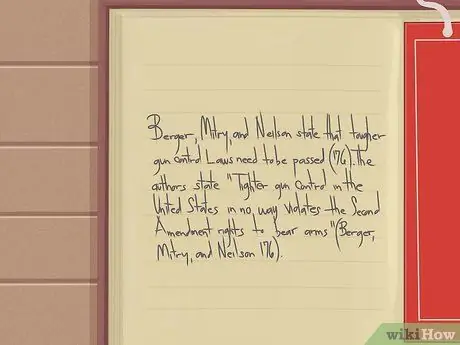 Berger, Mitry, and Neilson state that tougher
gun control Laws need to be passed (176). The
authors state "Tighter gun control in the
United States in no way violates the Second
Amendment rights to bear arms" (Berger,
Mitry, and Neilson 176).
wikiHow